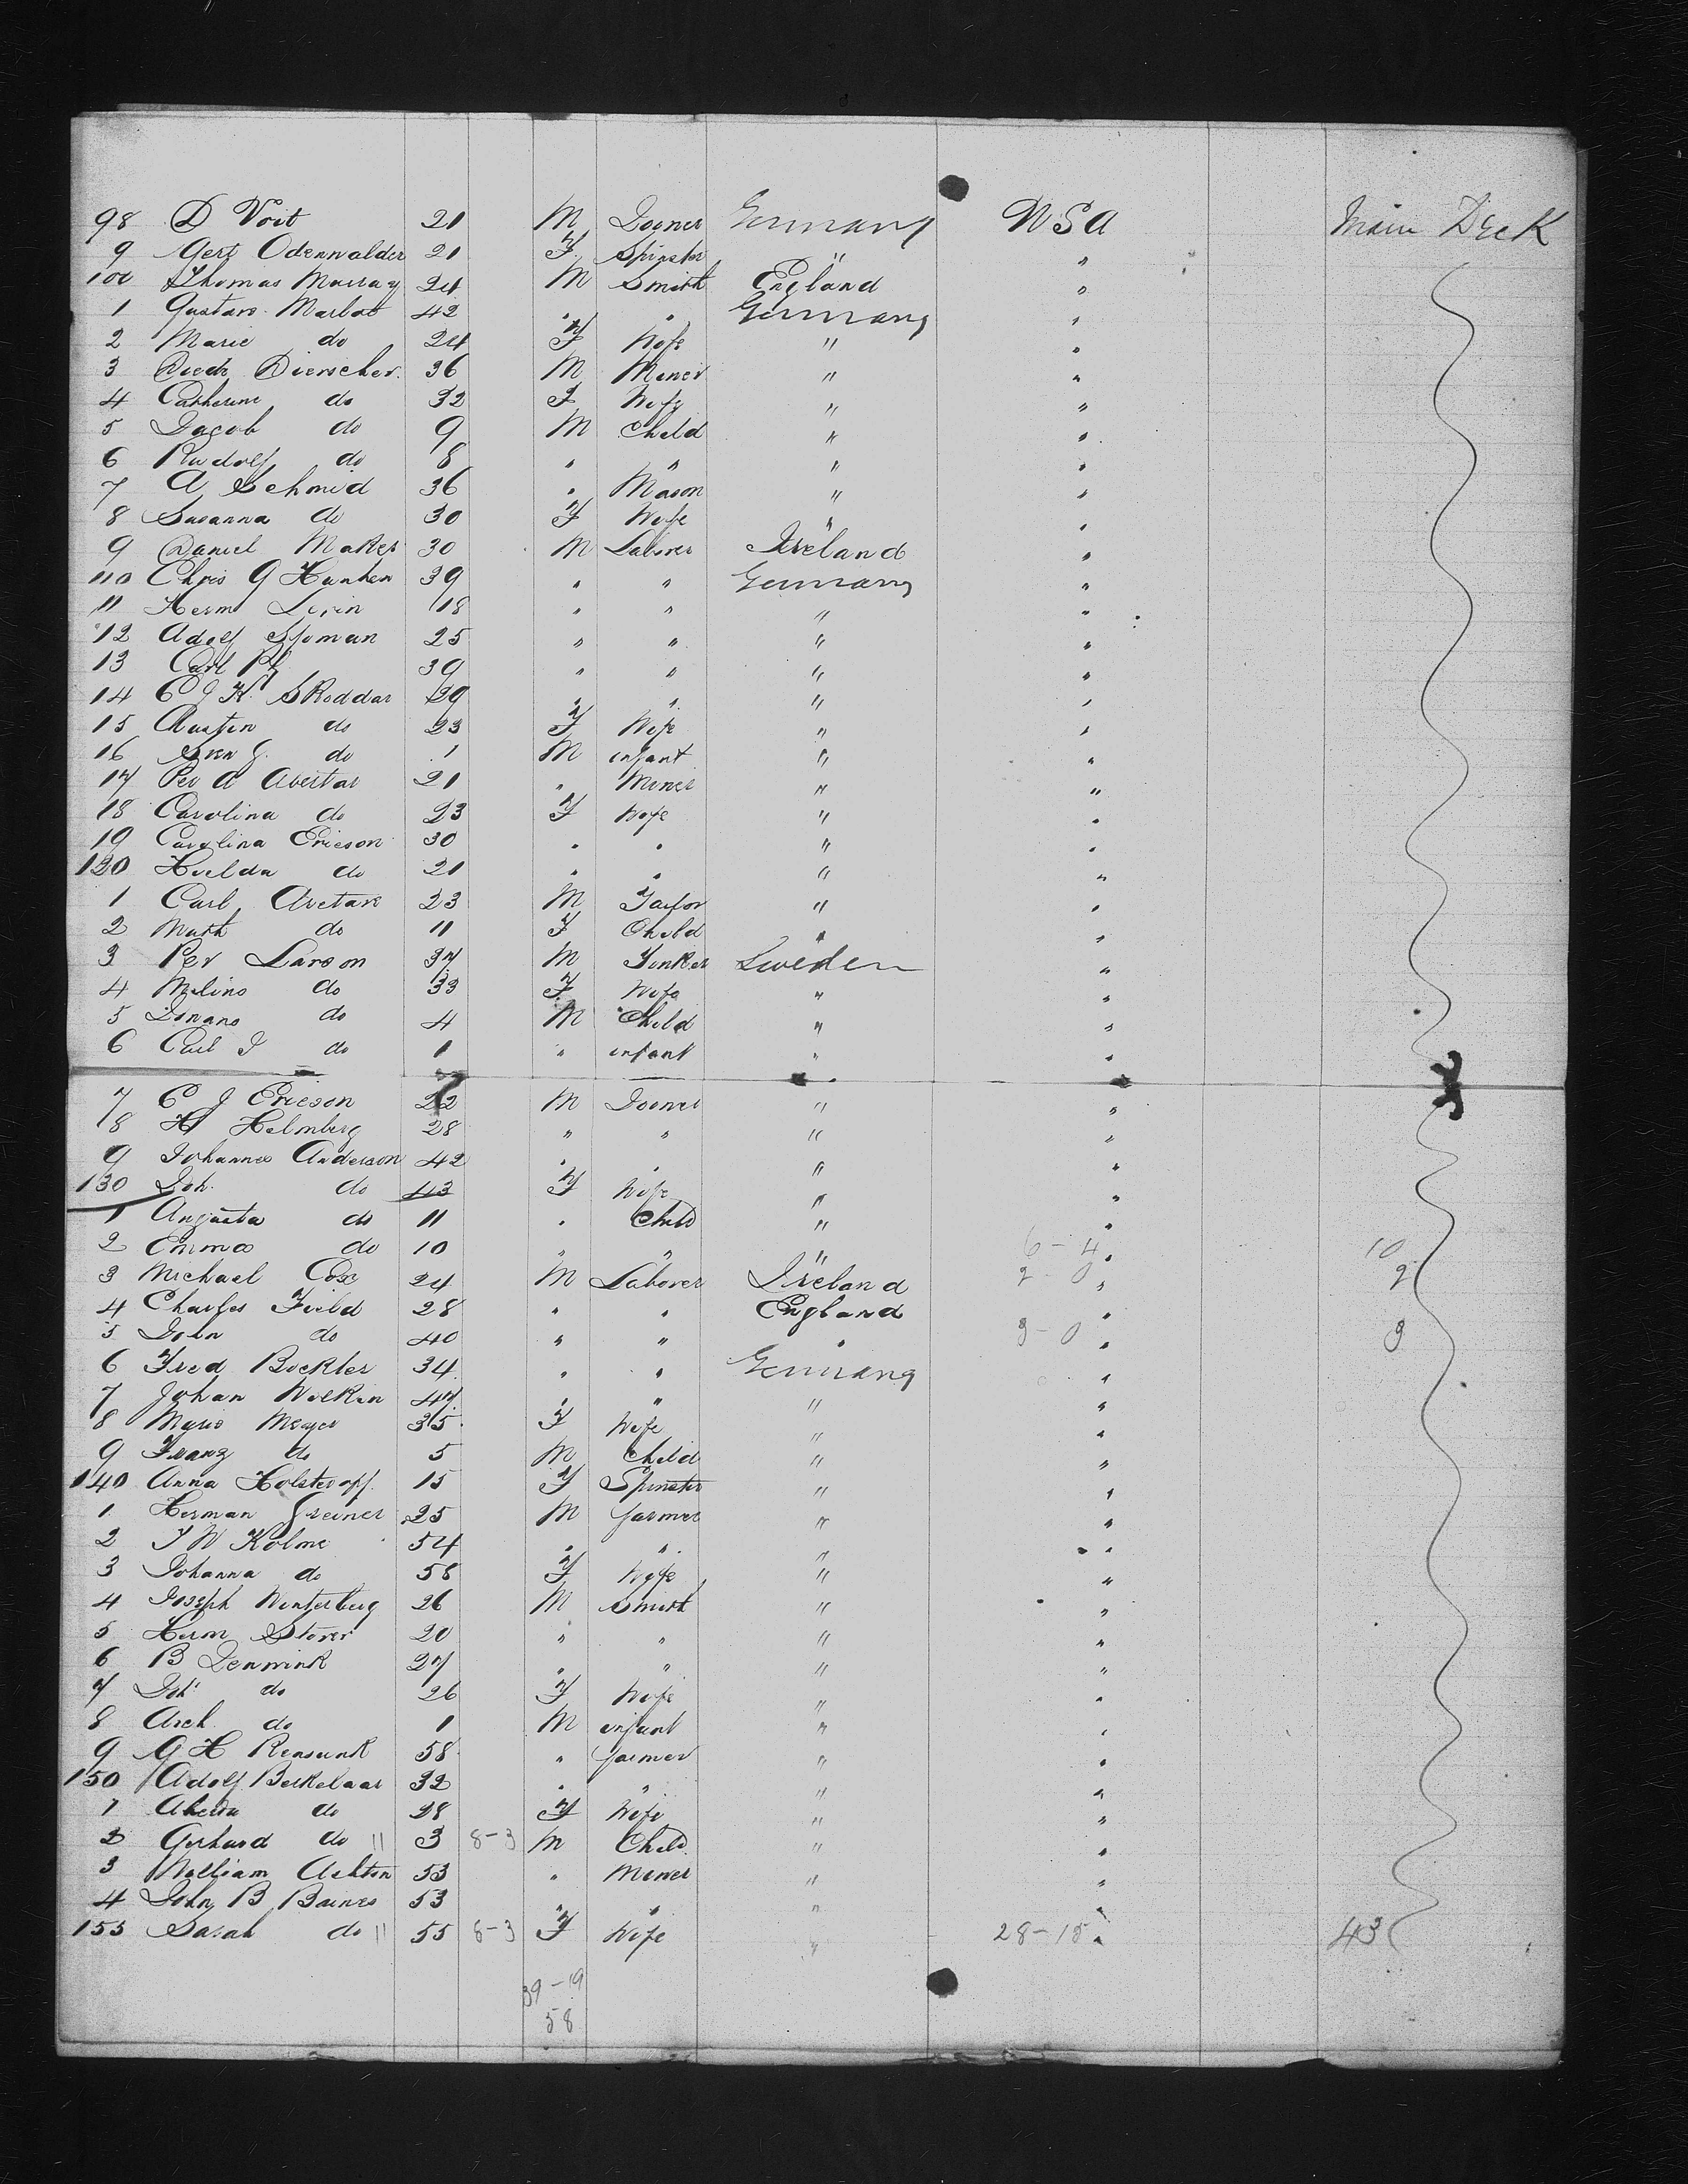 98 D Voit 21 M Joiner Germany USA Main Deck
9 Gert Odenwalder 21 F Spinster " "
100 Thomas Murray 24 M Smith England "
1 Gustav Marbot 42 " " Germany "
2 Marie do 24 F Wife " "
3 Diedr Dierscher 36 M Miner " "
4 Catherine do 32 F Wife " "
5 Jacob do 9 M Child " "
6 Rudolf do 8 " " " "
7 A Schmid 36 " Mason " "
8 Susanna do 30 F Wife " "
9 Daniel Maker 30 M Laborer Ireland "
110 Chris G Hanken 39 " " Germany "
11 Herm Levin 18 " " " "
12 Adolf Sjoman 25 " " " "
13 Carl 39 " " " "
14 C J K Skoddar 29 " " " "
15 do 23 F Wife " "
16 Sven G do 1 M infant " "
17 Per A Avestar 21 " Miner " "
18 Carolina do 23 F Wife " "
19 Carolina Ericson 30 " " " "
120 Hulda do 21 " " " "
1 Carl 23 M Taylor " "
2 do 11 F Child " "
3 Per Larson 37 M Tinker Sweden "
4 Melino do 33 F Wife " "
5 do 4 M Child " "
6 Carl J do 1 " infant " "
7 C J Ericson 22 M Joiner " "
8 H Holmberg 28 " " " "
9 Johannes Anderson 42 " " " "
130 Joh. do 43 F Wife " "
1 Augusta do 11 " Child " "
2 Emma do 10 " " " 6-4 " 10
3 Michael Cox 24 M Laborer Ireland 2-0 " 2
4 Charles Field 28 " " England "
5 John do 40 " " " 3-0 " 3
6 Fred Bockler 34 " " Germany "
7 Johan Wilkin 47 " " " "
8 Meyer 35 F Wife " "
9 Franz do 5 M Child " "
140 Anna Holsteropf 15 F Spinster " "
1 Herman Greiner 25 M farmer " "
2 J W Kolme 54 " " " "
3 Johanna do 58 F Wife " "
4 Joseph Winterberg 26 M Smith " "
5 Herm Storer 20 " " " "
6 B 27 " " " "
7 Joh do 26 F Wife " "
8 Arch do 1 M infant " "
9 G H Rensunk 58 " farmer " "
150 Adolf Berkelaar 32 " " " "
1 do 28 F Wife " "
2 Gerhard do 11 3 8-3 M Child " "
3 William Ashton 53 " Miner " "
4 John B Baines 53 " " " "
155 Sarah do 11 55 8-3 F Wife " 28-15 " 43
39-19
58